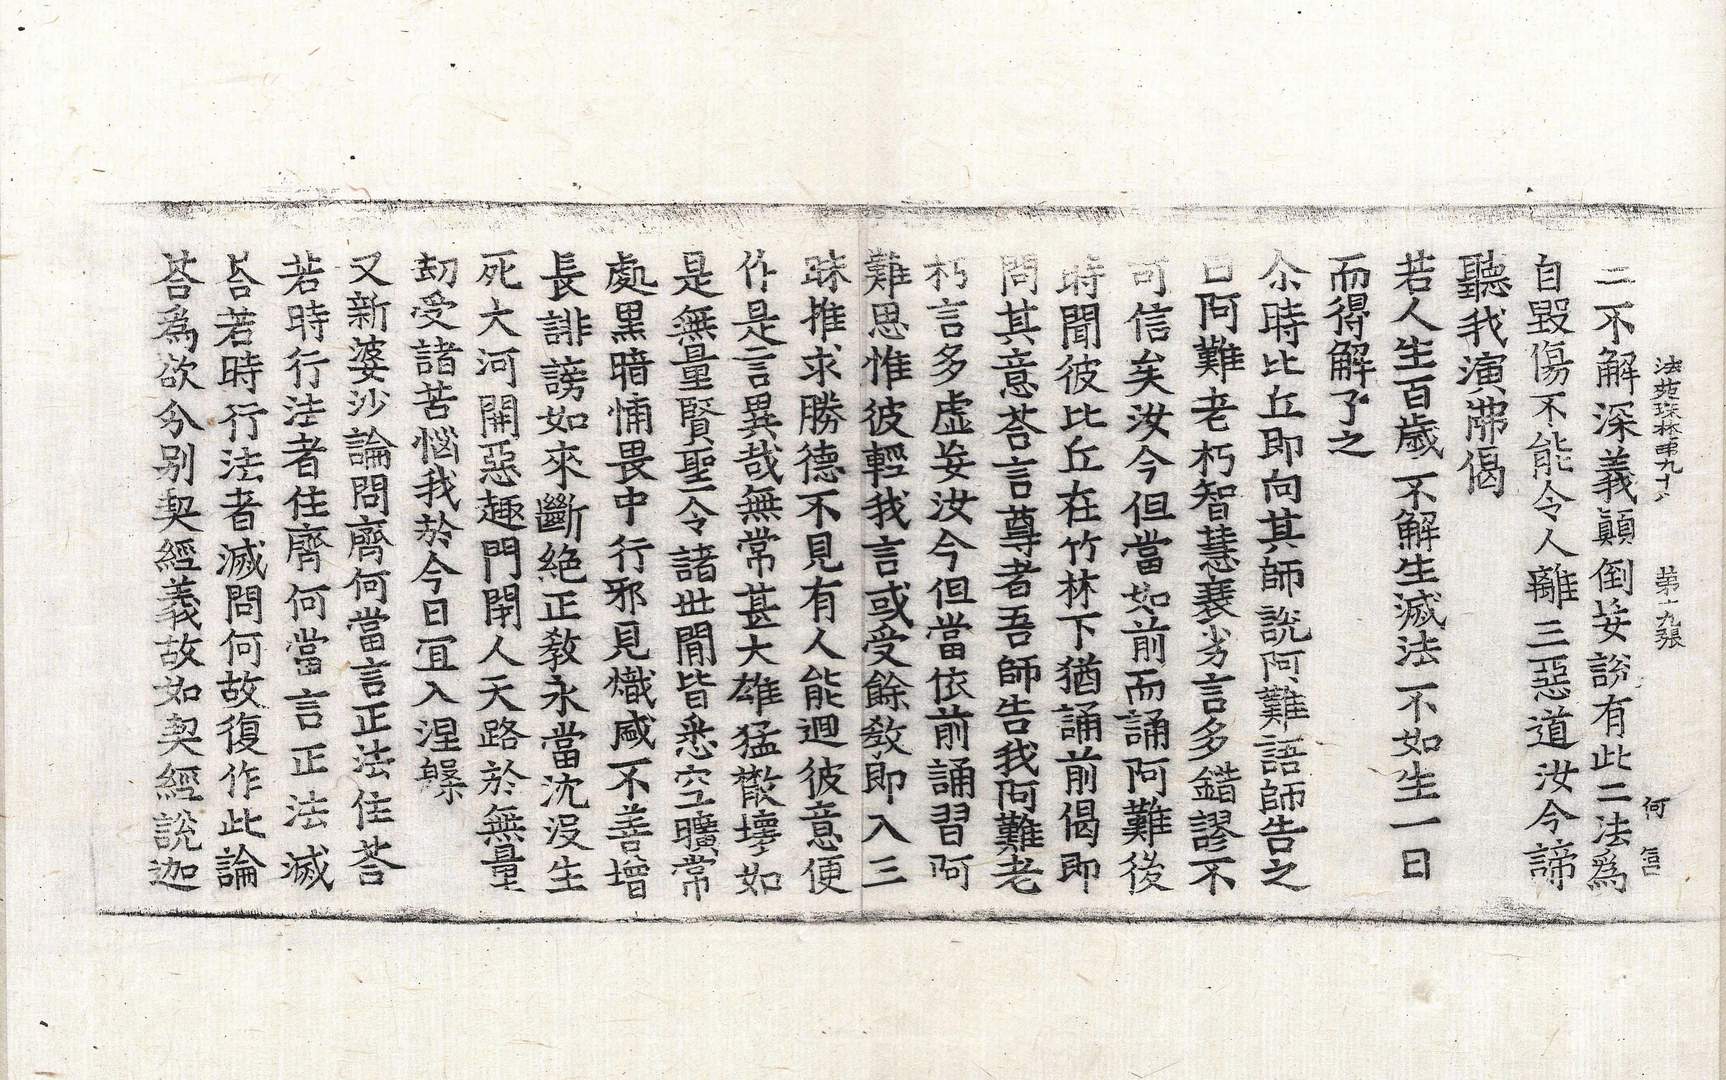 法苑珠林第九十八 第十九張 何 㝉
二不解深義顚倒妄說有此二法爲
自毀傷不能令人離三惡道汝今諦
聽我演佛偈
若人生百歲 不解生滅法 不如生一日
而得解了之
尒時比丘即向其師說阿難語師告之
曰阿難老朽智慧衰劣言多錯謬不
可信矣汝今但當如前而誦阿難後
時聞彼比丘在竹林下猶誦前偈即
問其意荅言尊者吾師告我阿難老
朽言多虛妄汝今但當依前誦習阿
難思惟彼輕我言或受餘敎即入三
昧推求勝德不見有人能迴彼意便
作是言異哉無常甚大雄猛散壞如
是無量賢聖令諸世間皆悉空曠常
處黑暗怖畏中行邪見熾盛不善增
長誹謗如來斷絶正敎永當沈沒生
死大河開惡趣門閉人天路於無量
劫受諸苦惱我於今日冝入涅槃
又新婆沙論問齊何當言正法住荅
若時行法者住齊何當言正法滅
荅若時行法者滅問何故復作此論
荅爲欲分別契經義故如契經說迦